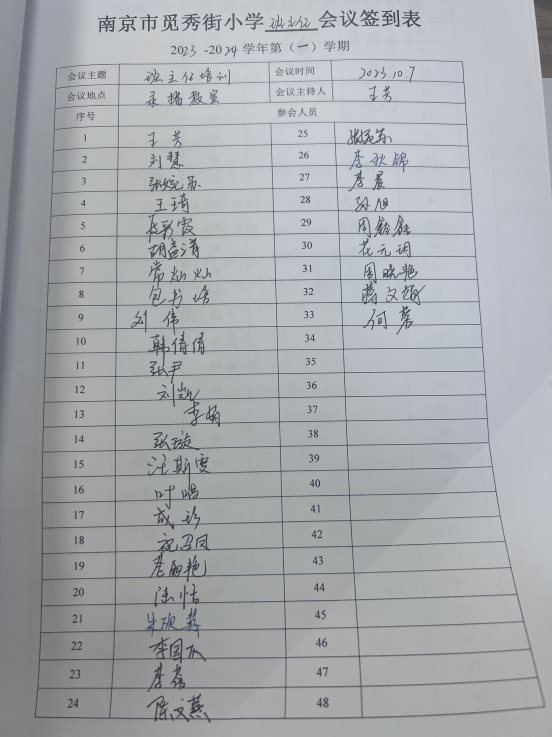 南京市觅秀街小学班主任会议签到表
2023-2024学年第（一）学期
会议主题 班主任培训 会议时间 2023.10.7
会议地点 录播教室 会议主持人 王芳
序号 参会人员
1 王芳 25 张婉苏
2 刘慧 26 李秋锦
3 张婉苏 27 李晨
4 王琦 28 孙旭
5 29 周
6 胡益清 30 花元玥
7 常灿灿 31 周晓艳
8 包书培 32 蒋文娟
9 刘伟 33 何蓉
10 韩倩倩 34
11 张尹 35
12 刘凯 36
13 李娟 37
14 张璇 38
15 汪斯雯 39
16 叶鸣 40
17 成珍 41
18 祝召凤 42
19 艳 43
20 陆恬 44
21 朱欣 45
22 李国 46
23 李蓓 47
24 陈文燕 48